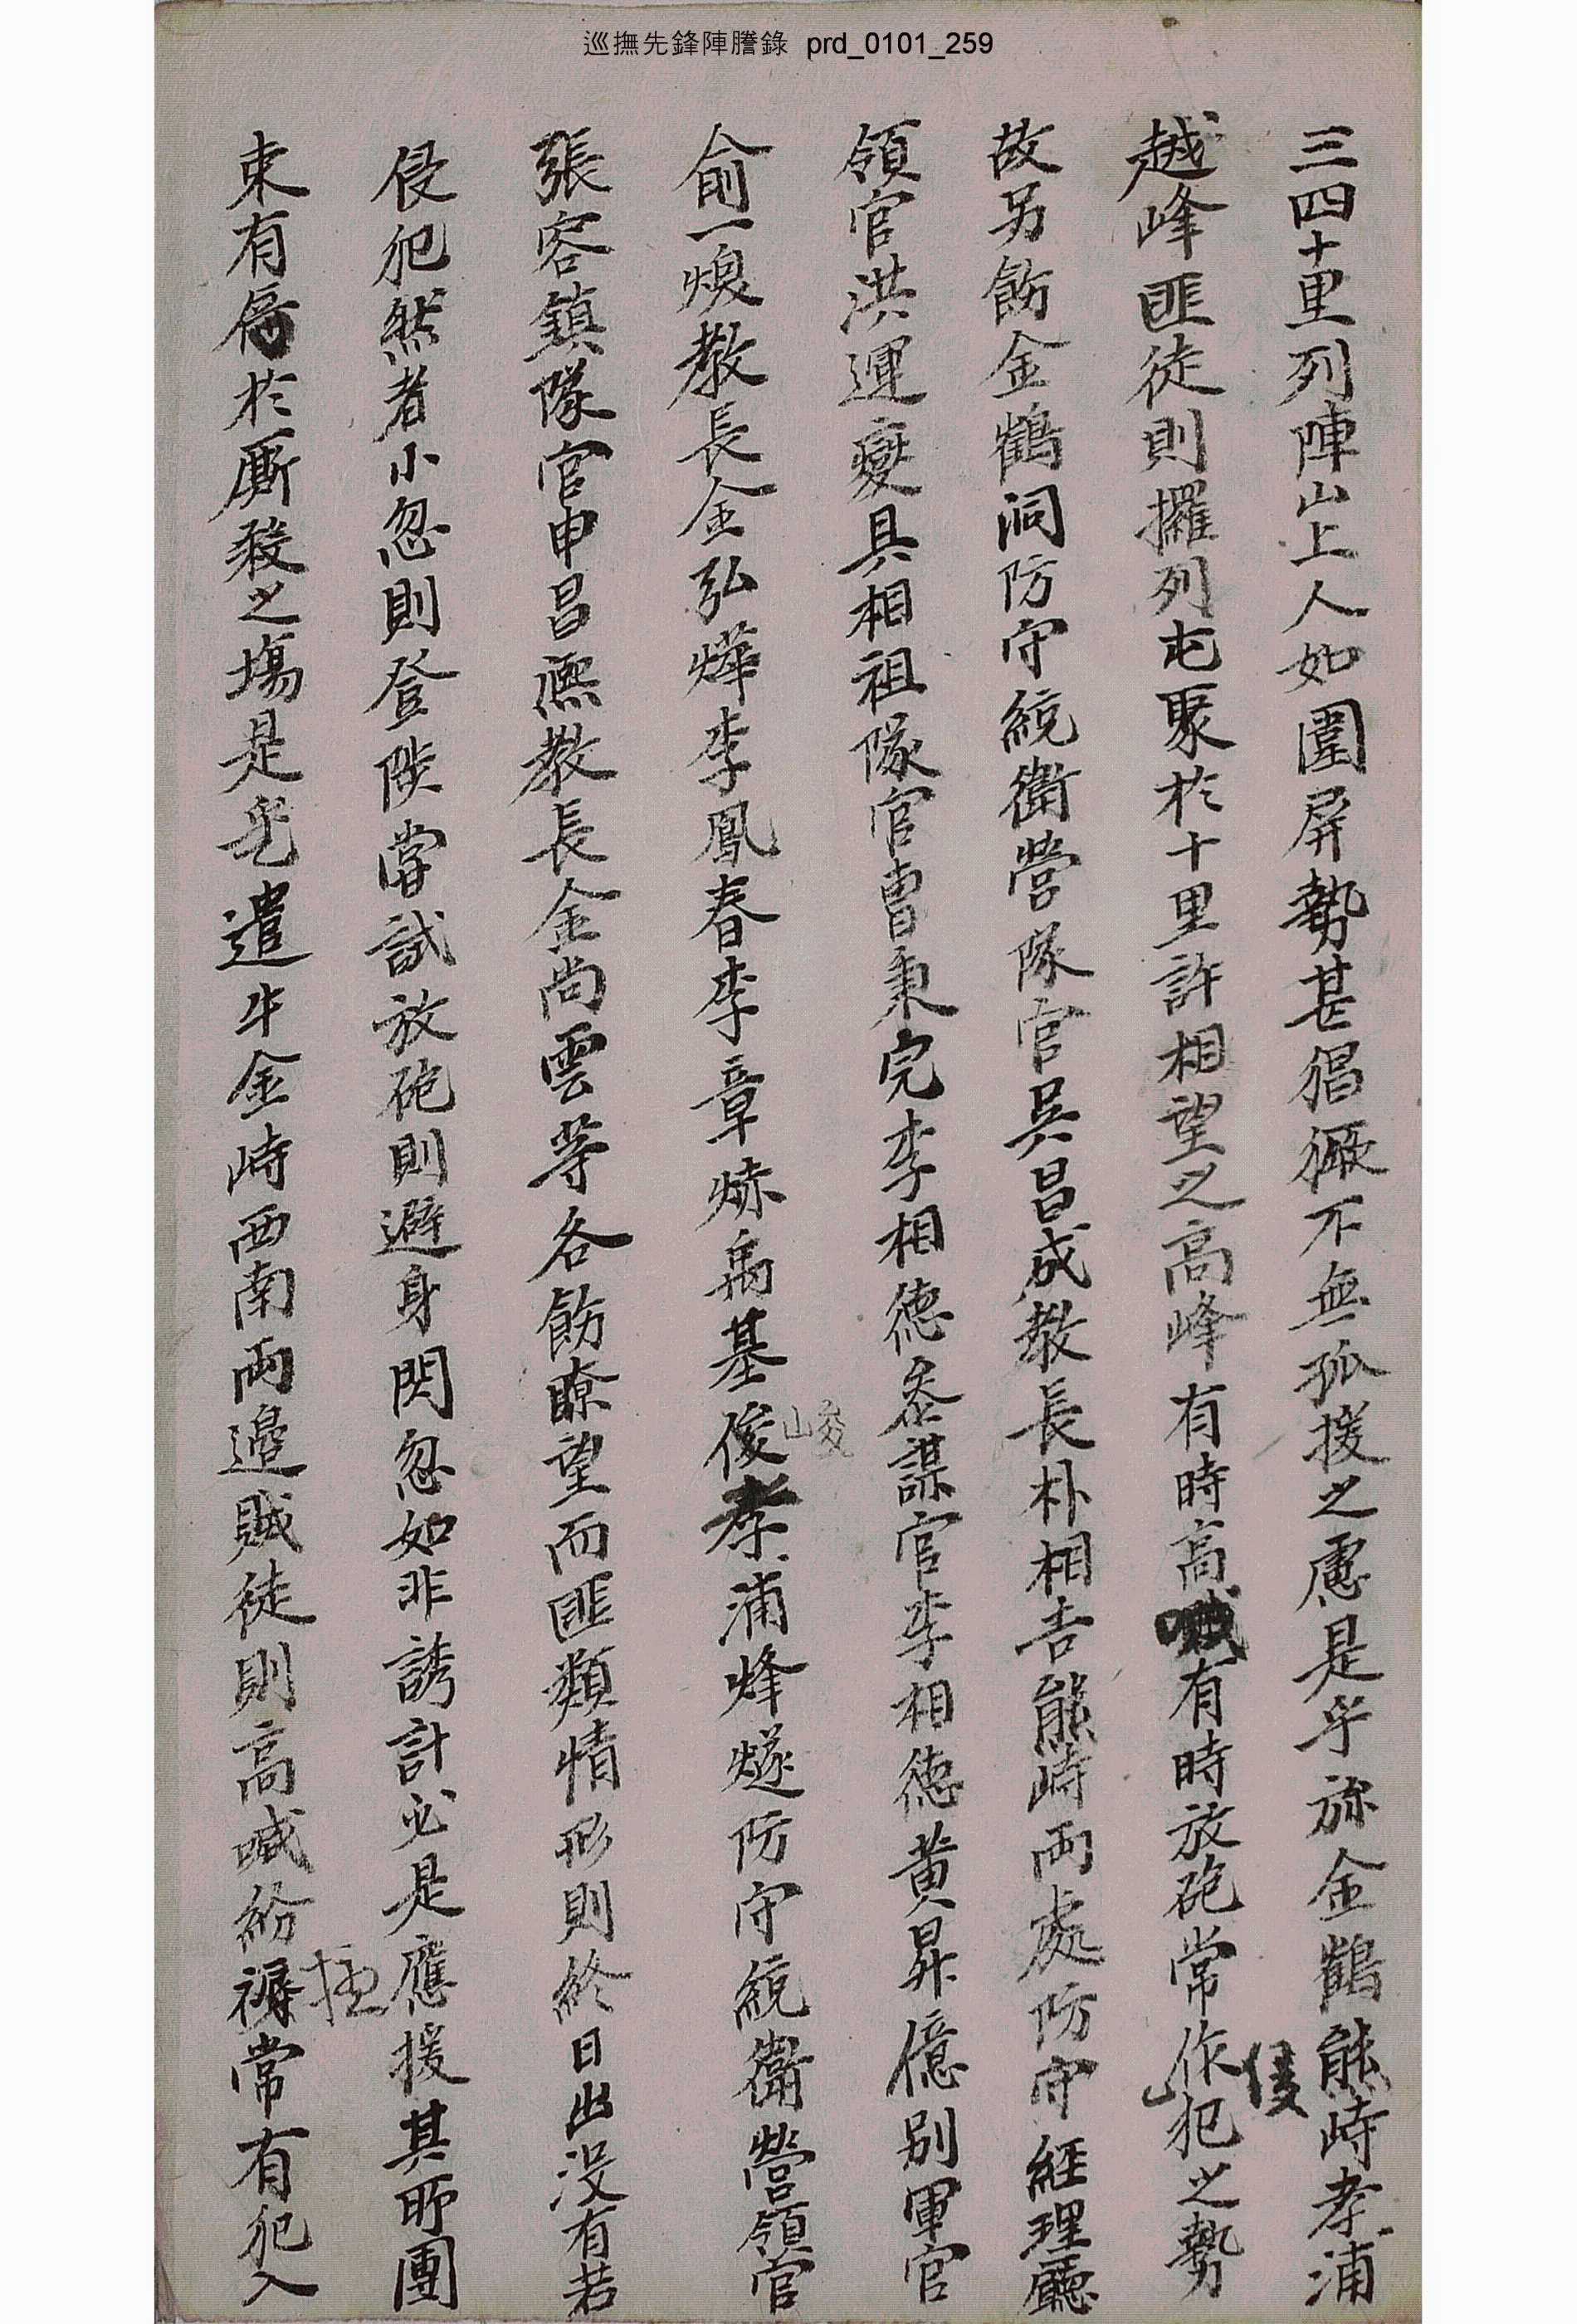 巡撫先鋒陣謄錄 prd_0101_259
三四十里列陣山上人如圍屛勢甚猖獗不無孤援之慮是乎旀金鶴熊峙孝浦
越峰匪徒則擺列屯聚於十里許相望之高峰有時高喊有時放砲常作侵犯之勢
故另飭金鶴洞防守統衛營隊官吳昌成敎長朴相吉熊峙兩處防守經理廳
領官洪運燮具相祖隊官曺秉完李相德叅謀官李相德黃昇億別軍官
兪一煥敎長金弘燁李鳳春李章爀禹基俊孝浦烽燧防守統衛營領官
峻
張容鎭隊官申昌熙敎長金尙雲等各飭瞭望而匪類情形則終日出沒有若
侵犯然者小忽則登陟嘗試放砲則避身閃忽如非誘計必是應援其所團
束有爲於厮殺之場是乎遣牛金峙西南兩邊賊徒則高喊紛褥常有犯入